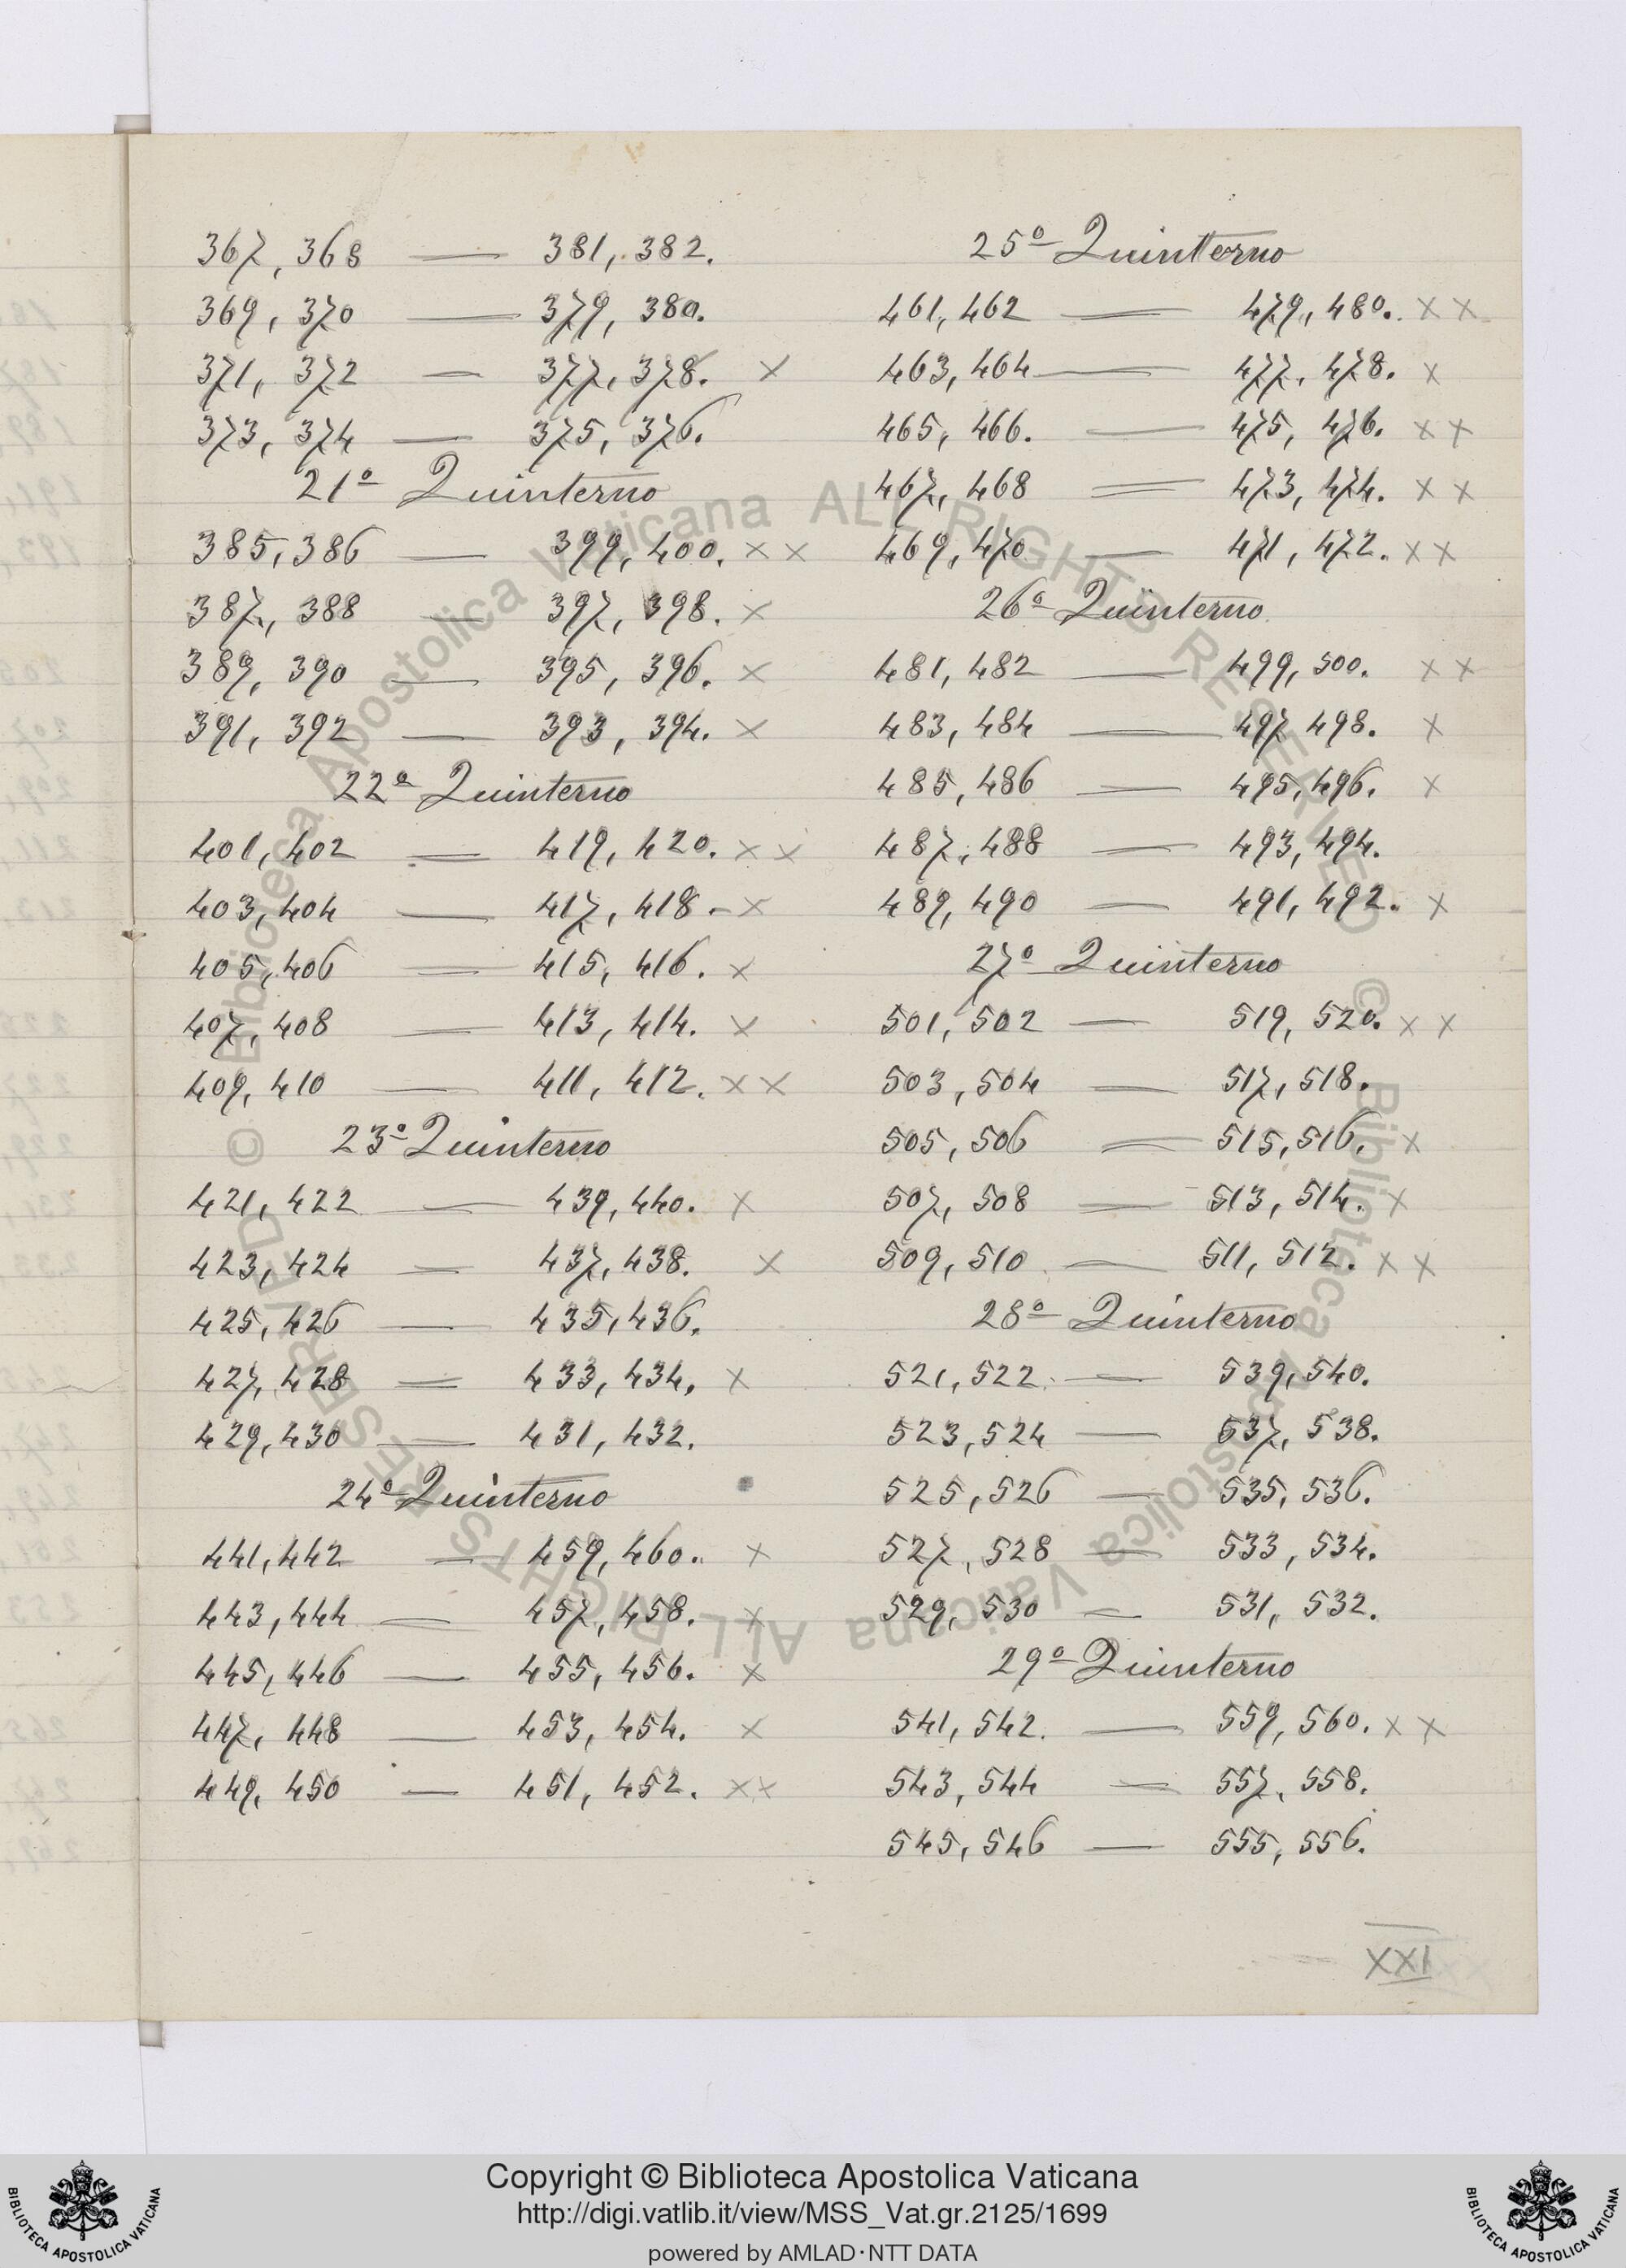 367, 368 — 381, 382.
369, 370 — 379, 380.
371, 372 — 377, 378. ×
373, 374 — 375, 376.
21º Quinterno
385, 386 — 399, 400. × ×
387, 388 — 397, 398. ×
389, 390 — 395, 396. ×
391, 392 — 393, 394. ×
22º Quinterno
401, 402 — 419, 420. × ×
403, 404 — 417, 418. – ×
405, 406 — 415, 416. ×
407, 408 — 413, 414. ×
409, 410 — 411, 412. × ×
23º Quinterno
421, 422 — 439, 440. ×
423, 424 — 437, 438. ×
425, 426 — 435, 436.
427, 428 — 433, 434. ×
429, 430 — 431, 432.
24º Quinterno
441, 442 — 459, 460. ×
443, 444 — 457, 458. ×
445, 446 — 455, 456. ×
447, 448 — 453, 454. ×
449, 450 — 451, 452. × ×
25º Quinterno
461, 462 — 479, 480. × ×
463, 464 — 477, 478. ×
465, 466. — 475, 476. × ×
467, 468 — 473, 474. × ×
469, 470 — 471, 472. × ×
26º Quinterno
481, 482 — 499, 500. × ×
483, 484 — 497 498. ×
485, 486 — 495, 496. ×
487, 488 — 493, 494.
489, 490 — 491, 492. ×
27º Quinterno
501, 502 — 519, 520. × ×
503, 504 — 517, 518.
505, 506 — 515, 516. ×
507, 508 — 513, 514. ×
509, 510 — 511, 512. × ×
28º Quinterno
521, 522. — 539, 540.
523, 524 — 537, 538.
525, 526 — 535, 536.
527, 528 — 533, 534.
529, 530 — 531, 532.
29º Quinterno
541, 542. — 559, 560. × ×
543, 544 — 557, 558.
545, 546 — 555, 556.
XXI
© Biblioteca Apostolica Vaticana ALL RIGHTS RESERVED
© Biblioteca Apostolica Vaticana ALL RIGHTS RESERVED
Copyright © Biblioteca Apostolica Vaticana
http://digi.vatlib.it/view/MSS_Vat.gr.2125/1699
powered by AMLAD·NTT DATA
BIBLIOTECA APOSTOLICA VATICANA
BIBLIOTECA APOSTOLICA VATICANA